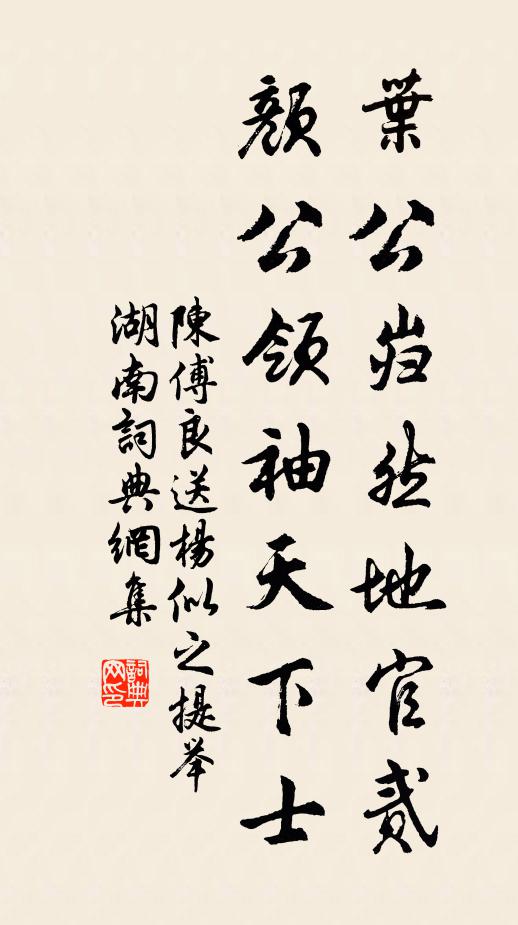 葉公岿然地官貳
顏公領袖天下士
陳傅良送楊似之提举
湖南詞典網集
詞典网印